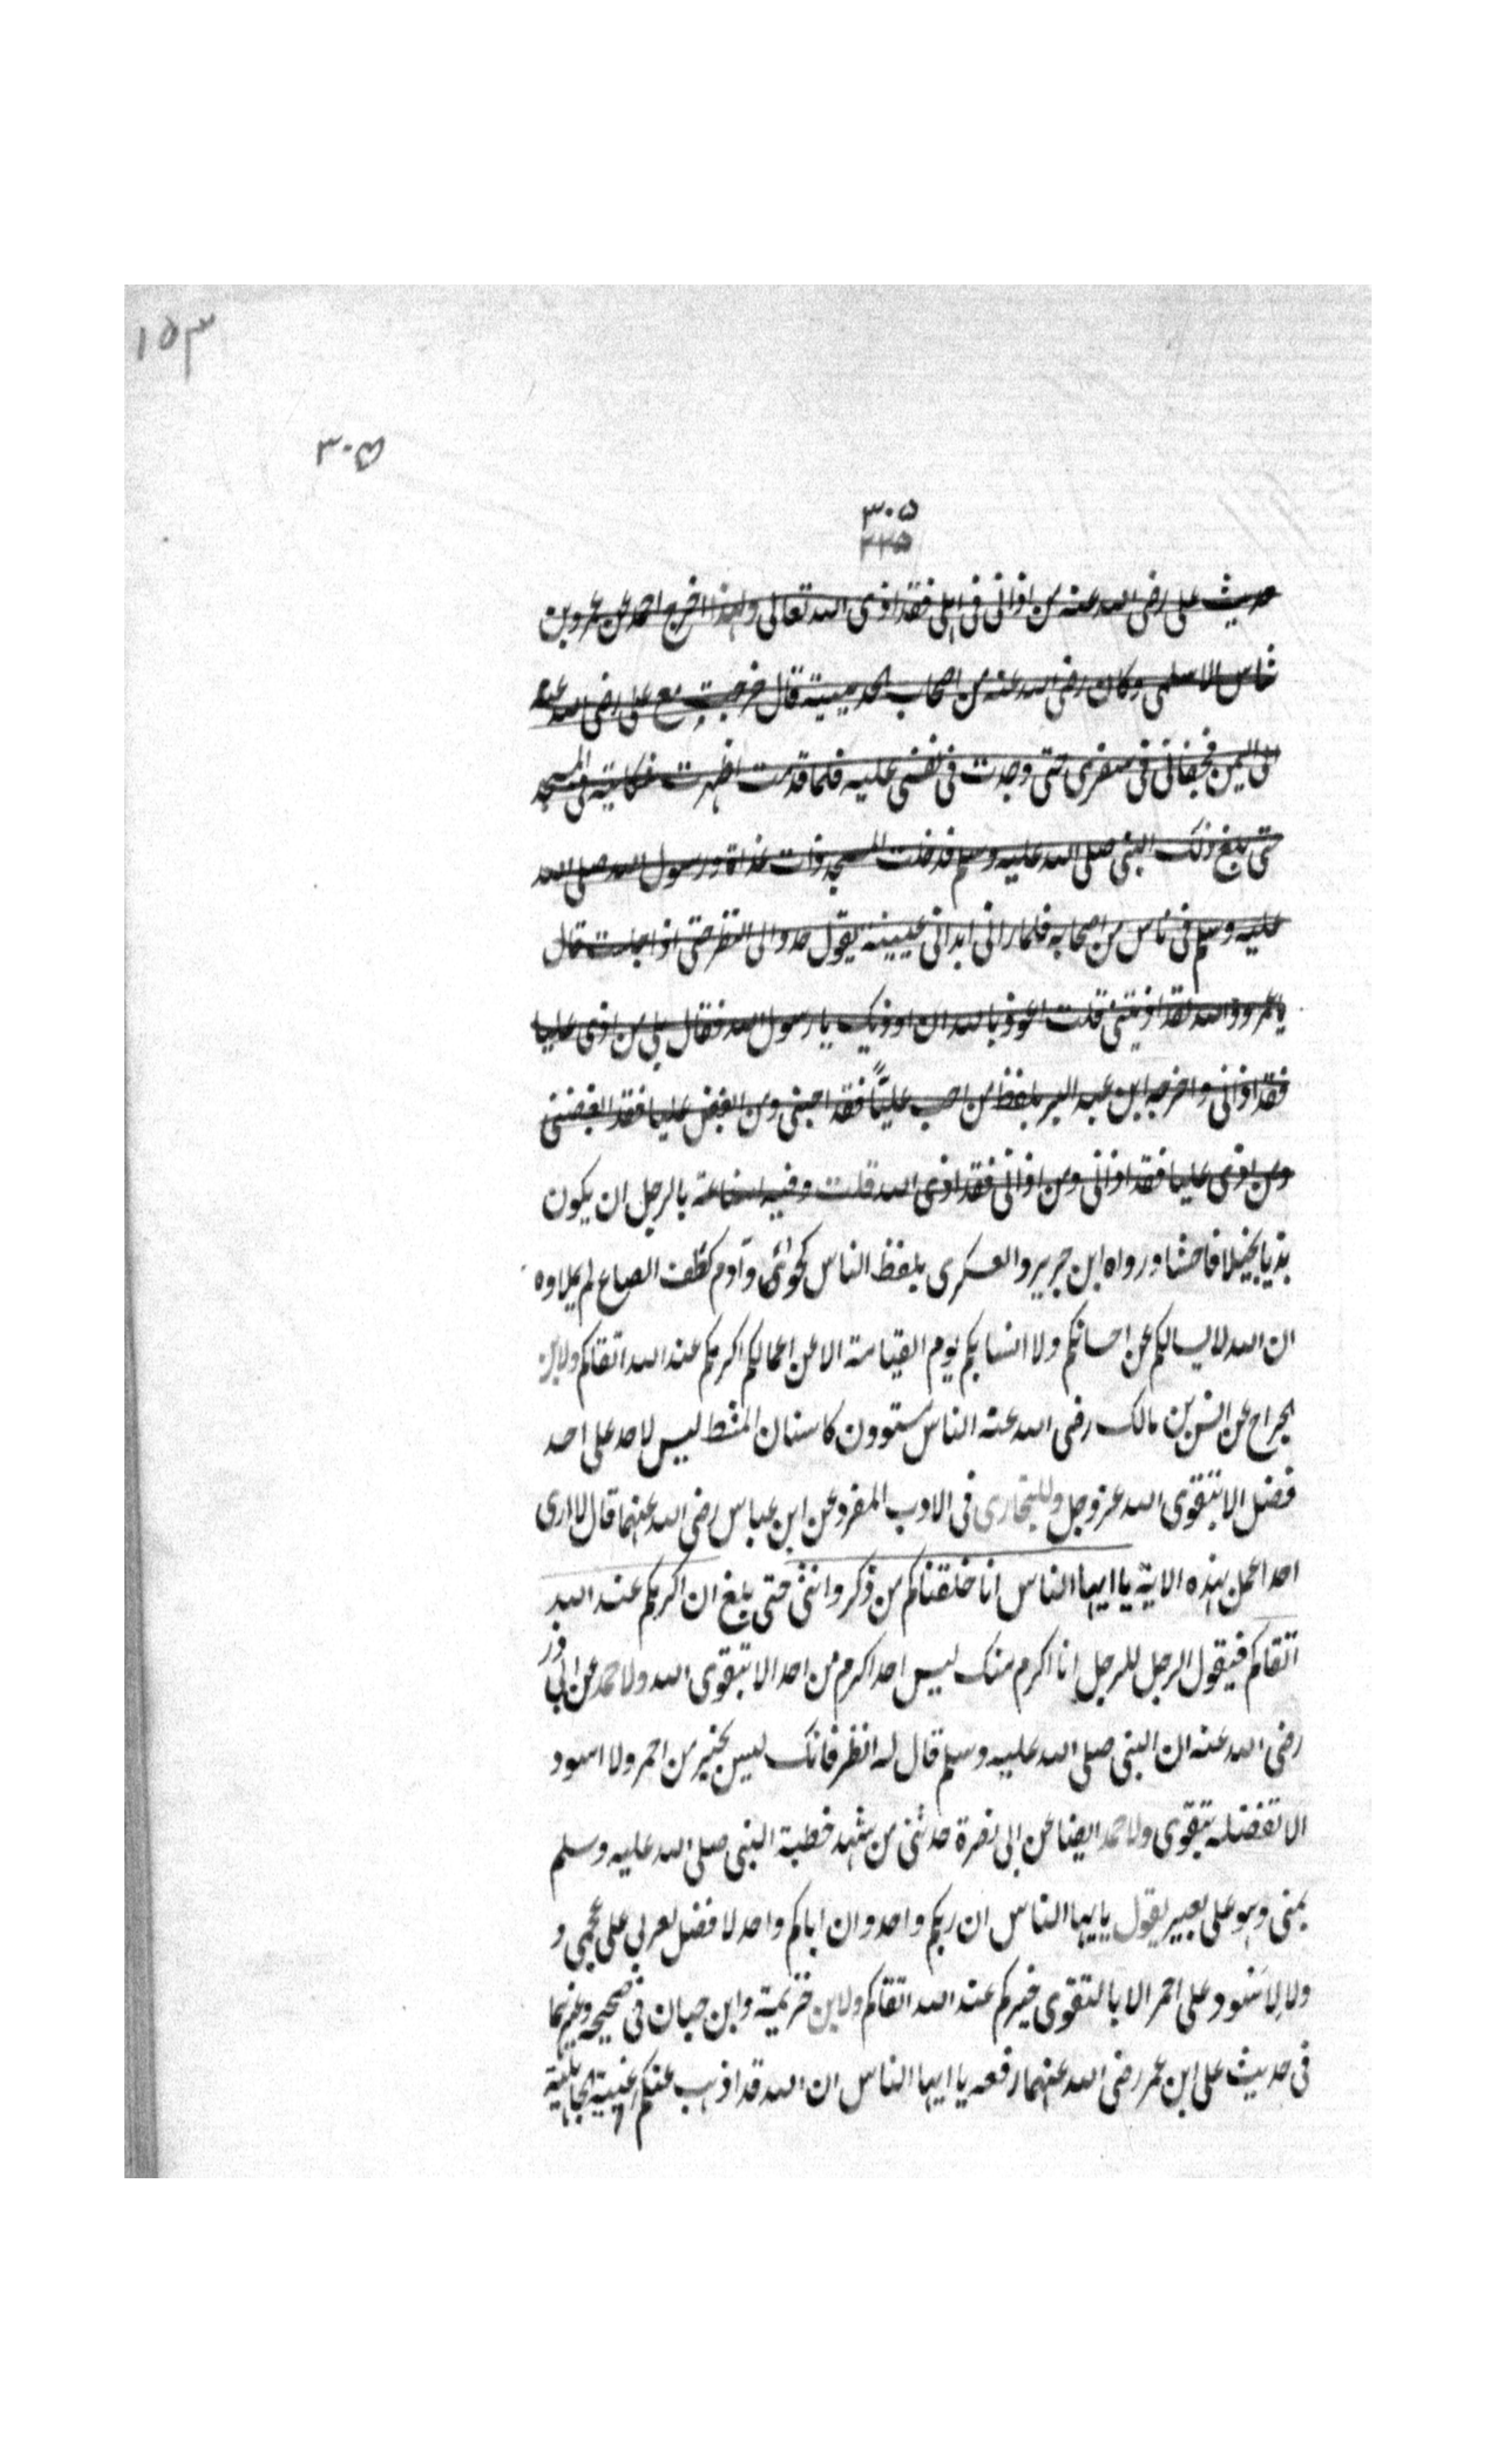 ١٥٣
٣٠٥
٣٠٥
٢٢٥
حديث على رضى الله عنه من اذانى فى اهلى فقد اذى الله تعالى ولهذا اخرج احمد عن عمرو بن
شاس الاسلمى وكان رضى الله عنه من اصحاب الحديبية قال خرجت مع على رضى الله عنه
الى اليمن فجفانى فى سفرى حتى وجدت فى نفسى عليه فلما قدمت اظهرت شكايته فى المسجد
حتى بلغ ذلك النبى صلى الله عليه وسلم فدخلت المسجد ذات غداة ورسول الله صلى الله
عليه وسلم فى ناس من اصحابه فلما رانى ابدانى عينيه يقول حدد الى النظر حتى اذا جلست قال
يا عمرو والله لقد اذيتنى قلت اعوذ بالله ان اوذيك يا رسول الله فقال بلى من اذى عليا
فقد اذانى واخرجه ابن عبد البر بلفظ من احب عليًّا فقد احبنى ومن ابغض عليا فقد ابغضنى
ومن اذى عليا فقد اذانى ومن اذانى فقد اذى الله قلت وفيه بالرجل ان يكون
بذيا بخيلا فاحشا ورواه ابن جرير والعسكرى بلفظ الناس لحواء وآدم كطف الصاع لم يملاوه
ان الله لا يسالكم عن احسابكم ولا انسابكم يوم القيامة الا عن اعمالكم اكرمكم عند الله اتقاكم ولابن
الجراح عن انس بن مالك رضى الله عنه الناس مستوون كاسنان المشط ليس لاحد على احد
فضل الا بتقوى الله عز وجل وللبخارى فى الادب المفرد عن ابن عباس رضى الله عنهما قال لا ارى
احدا عمل بهذه الاية يا ايها الناس انا خلقناكم من ذكر وانثى حتى بلغ ان اكرمكم عند الله
اتقاكم فيقول الرجل للرجل انا اكرم منك ليس احد اكرم من احد الا بتقوى الله ولاحمد عن ابى ذر
رضى الله عنه ان النبى صلى الله عليه وسلم قال له انظر فانك ليس بخير من احمر ولا اسود
الا تفضله بتقوى ولاحمد ايضا عن ابى نضرة حدثنى من شهد خطبة النبى صلى الله عليه وسلم
بمنى وهو على بعير يقول يا يها الناس ان ربكم واحد وان اباكم واحد لا فضل لعربى على عجمى و
ولا لاسود على احمر الا بالتقوى خيركم عند الله اتقاكم ولابن خزيمة وابن حبان فى صحيحه وغيرهما
فى حديث على ابن عمر رضى الله عنهما رفعه يا ايها الناس ان الله قد اذهب عنكم الجاهلية